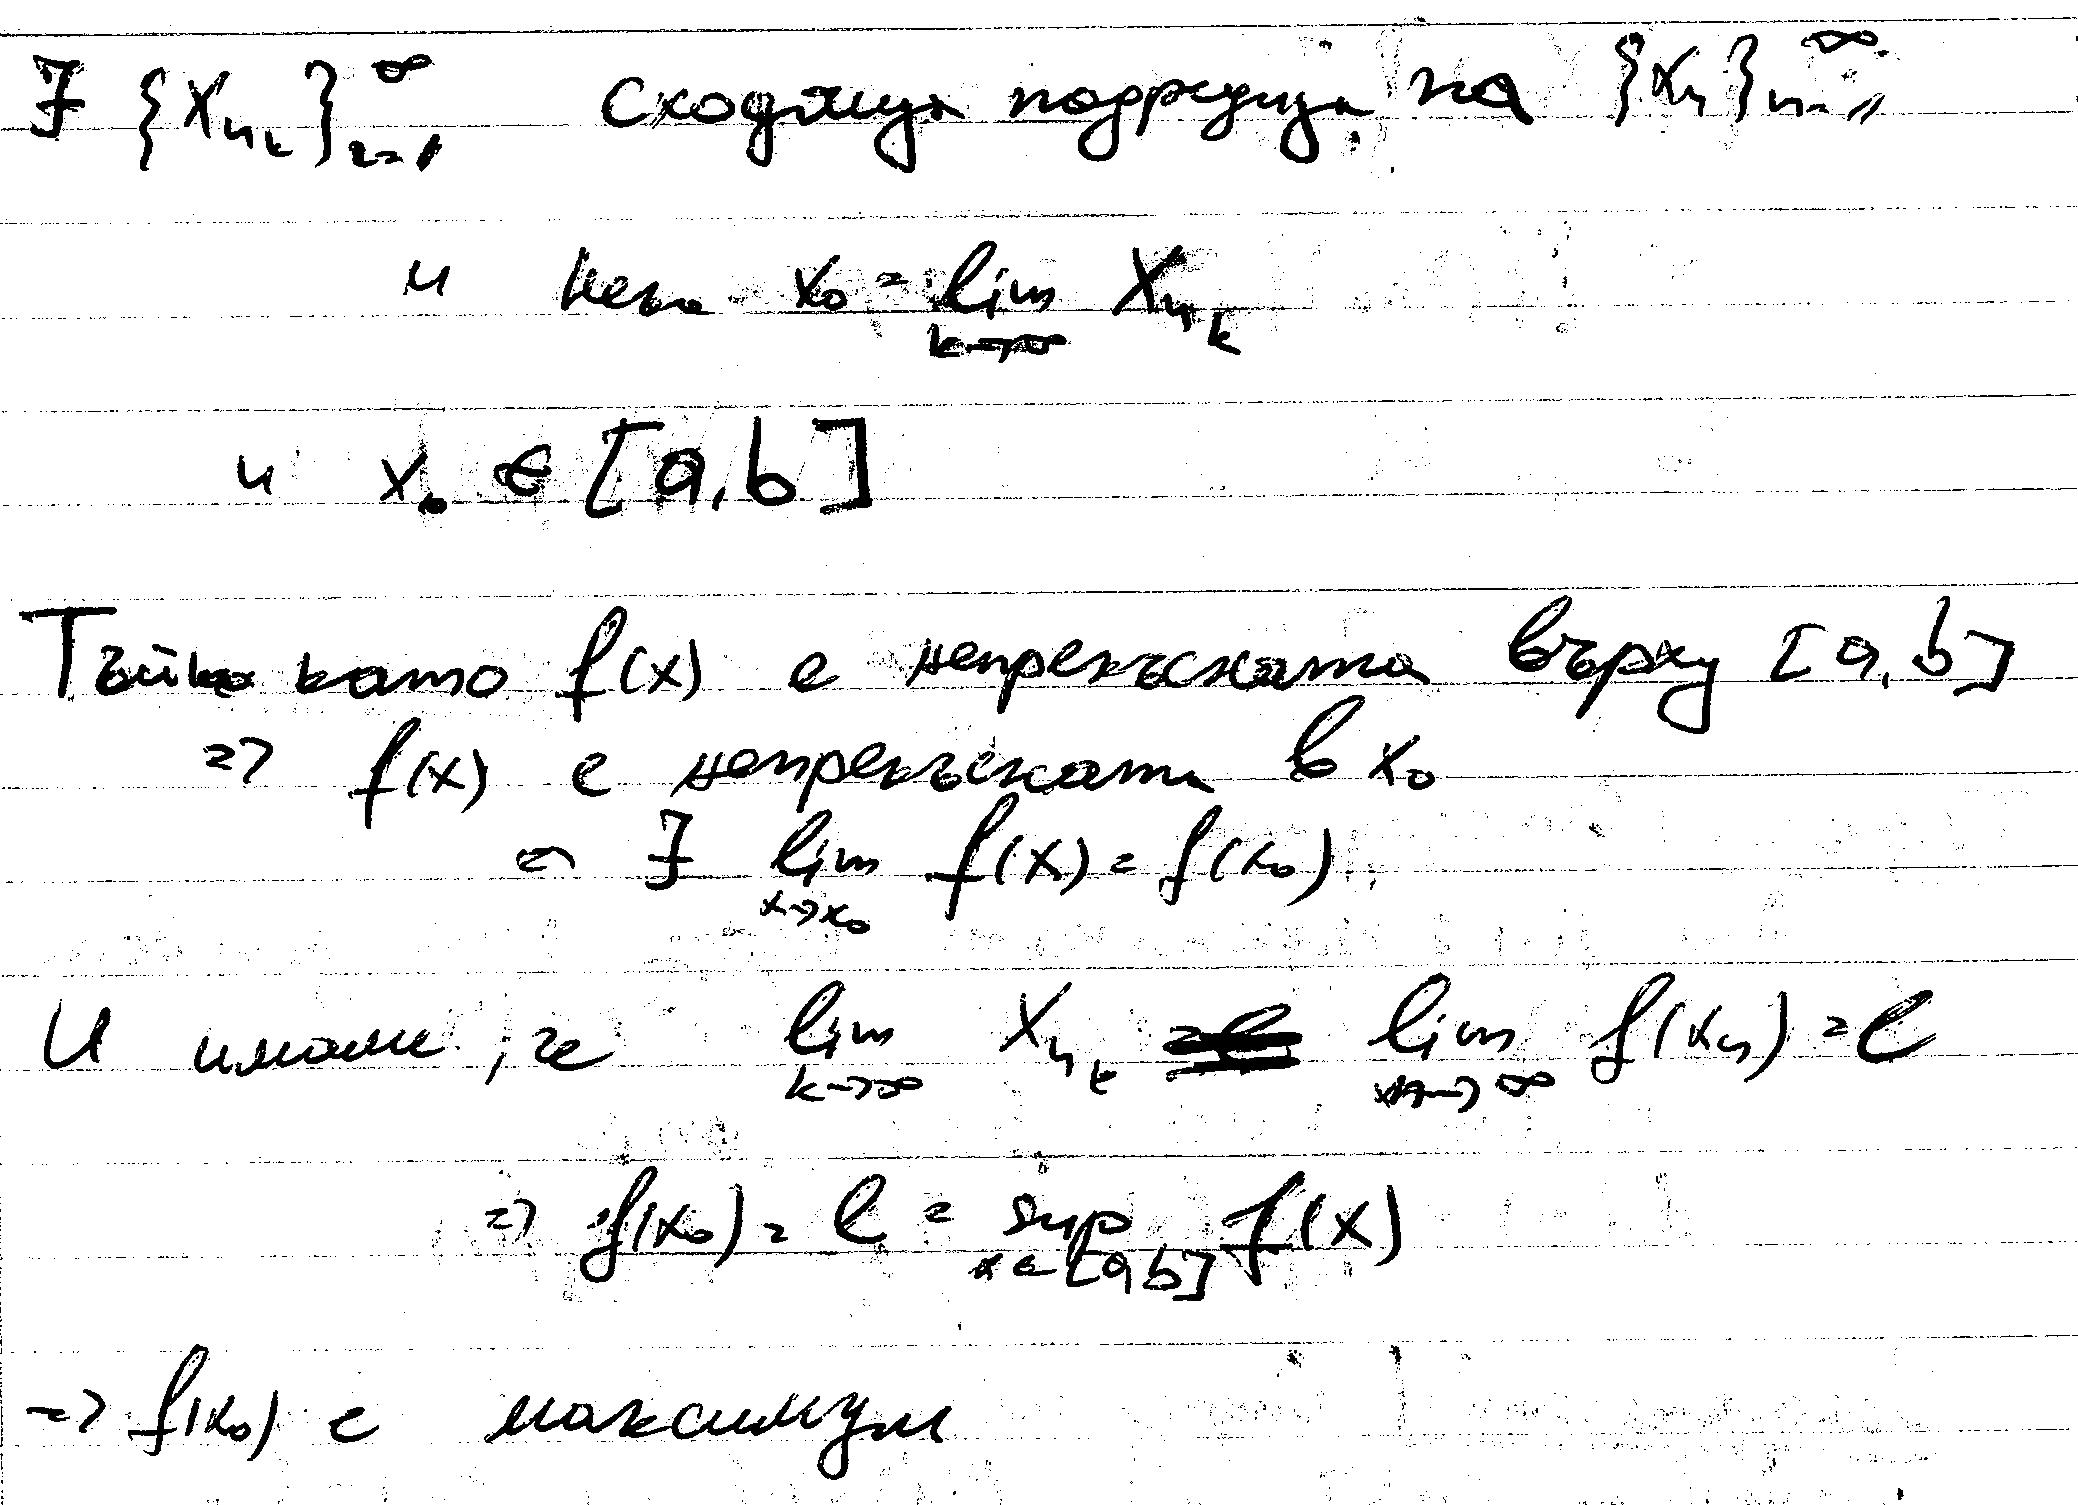 ∃ {x_{n_k}}_{k=1}^∞ сходяща подредица на {x_n}_{n=1}^∞
и нека x₀ = lim_{k→∞} x_{n_k}
и x₀ ∈ [a,b]
Тъй като f(x) е непрекъсната върху [a,b]
=> f(x) е непрекъсната в x₀
=> ∃ lim_{x→x₀} f(x) = f(x₀)
И имаме, че lim_{k→∞} x_{n_k} lim_{n→∞} f(x_n) = l
=> f(x₀) = l = sup_{x∈[a,b]} f(x)
=> f(x₀) е максимум